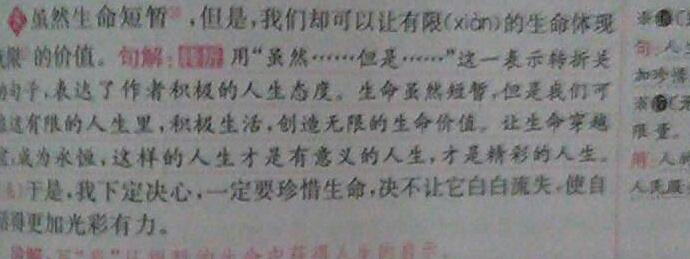 虽然生命短暂,但是,我们却可以让有限(xiàn)的生命体现
的价值。句解: 用“虽然……但是……”这一表示转折关
句子,表达了作者积极的人生态度。生命虽然短暂,但是我们可
这有限的人生里,积极生活,创造无限的生命价值。让生命穿越
成为永恒,这样的人生才是有意义的人生,才是精彩的人生。
于是,我下定决心,一定要珍惜生命,决不让它白白流失,使自
得更加光彩有力。
句
加珍惜
限量。
用:人
人民服